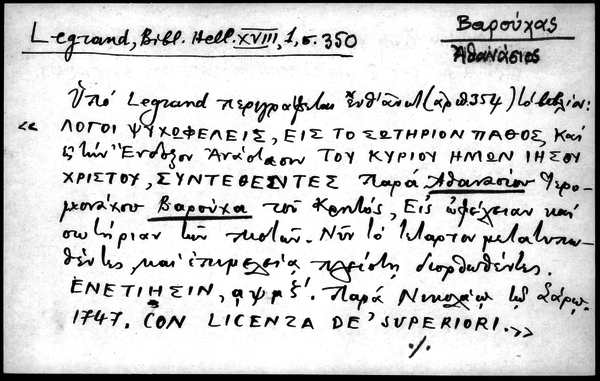 Legrand, Bibl. Hell. XVIII, 1, σ. 350
Βαρούχας
Ἀθανάσιος
Ὑπό Legrand περιγράφεται (ἀριθ 354) τό βιβλίον:
«ΛΟΓΟΙ ΨΥΧΩΦΕΛΕΙΣ, ΕΙΣ ΤΟ ΣΩΤΗΡΙΟΝ ΠΑΘΟΣ, Καί
εἰς τήν Ἔνδοξον Ἀνάστασιν ΤΟΥ ΚΥΡΙΟΥ ΗΜΩΝ ΙΗΣΟΥ
ΧΡΙΣΤΟΥ, ΣΥΝΤΕΘΕΝΤΕΣ παρά Ἀθανασίου Ἱερο-
μονάχου Βαρούχα τοῦ Κρητός, Εἰς ὠφέλειαν καί
σωτηρίαν τῶν πιστῶν. Νῦν τό τέταρτον μετατυπω-
θέντες, καί ἐπιμελείᾳ πλείστῃ διορθωθέντες.
ΕΝΕΤΙΗΣΙΝ, αψμζ΄. Παρά Νικολάῳ τῷ Σάρῳ.
1747. CON LICENZA DE' SUPERIORI.»
./.